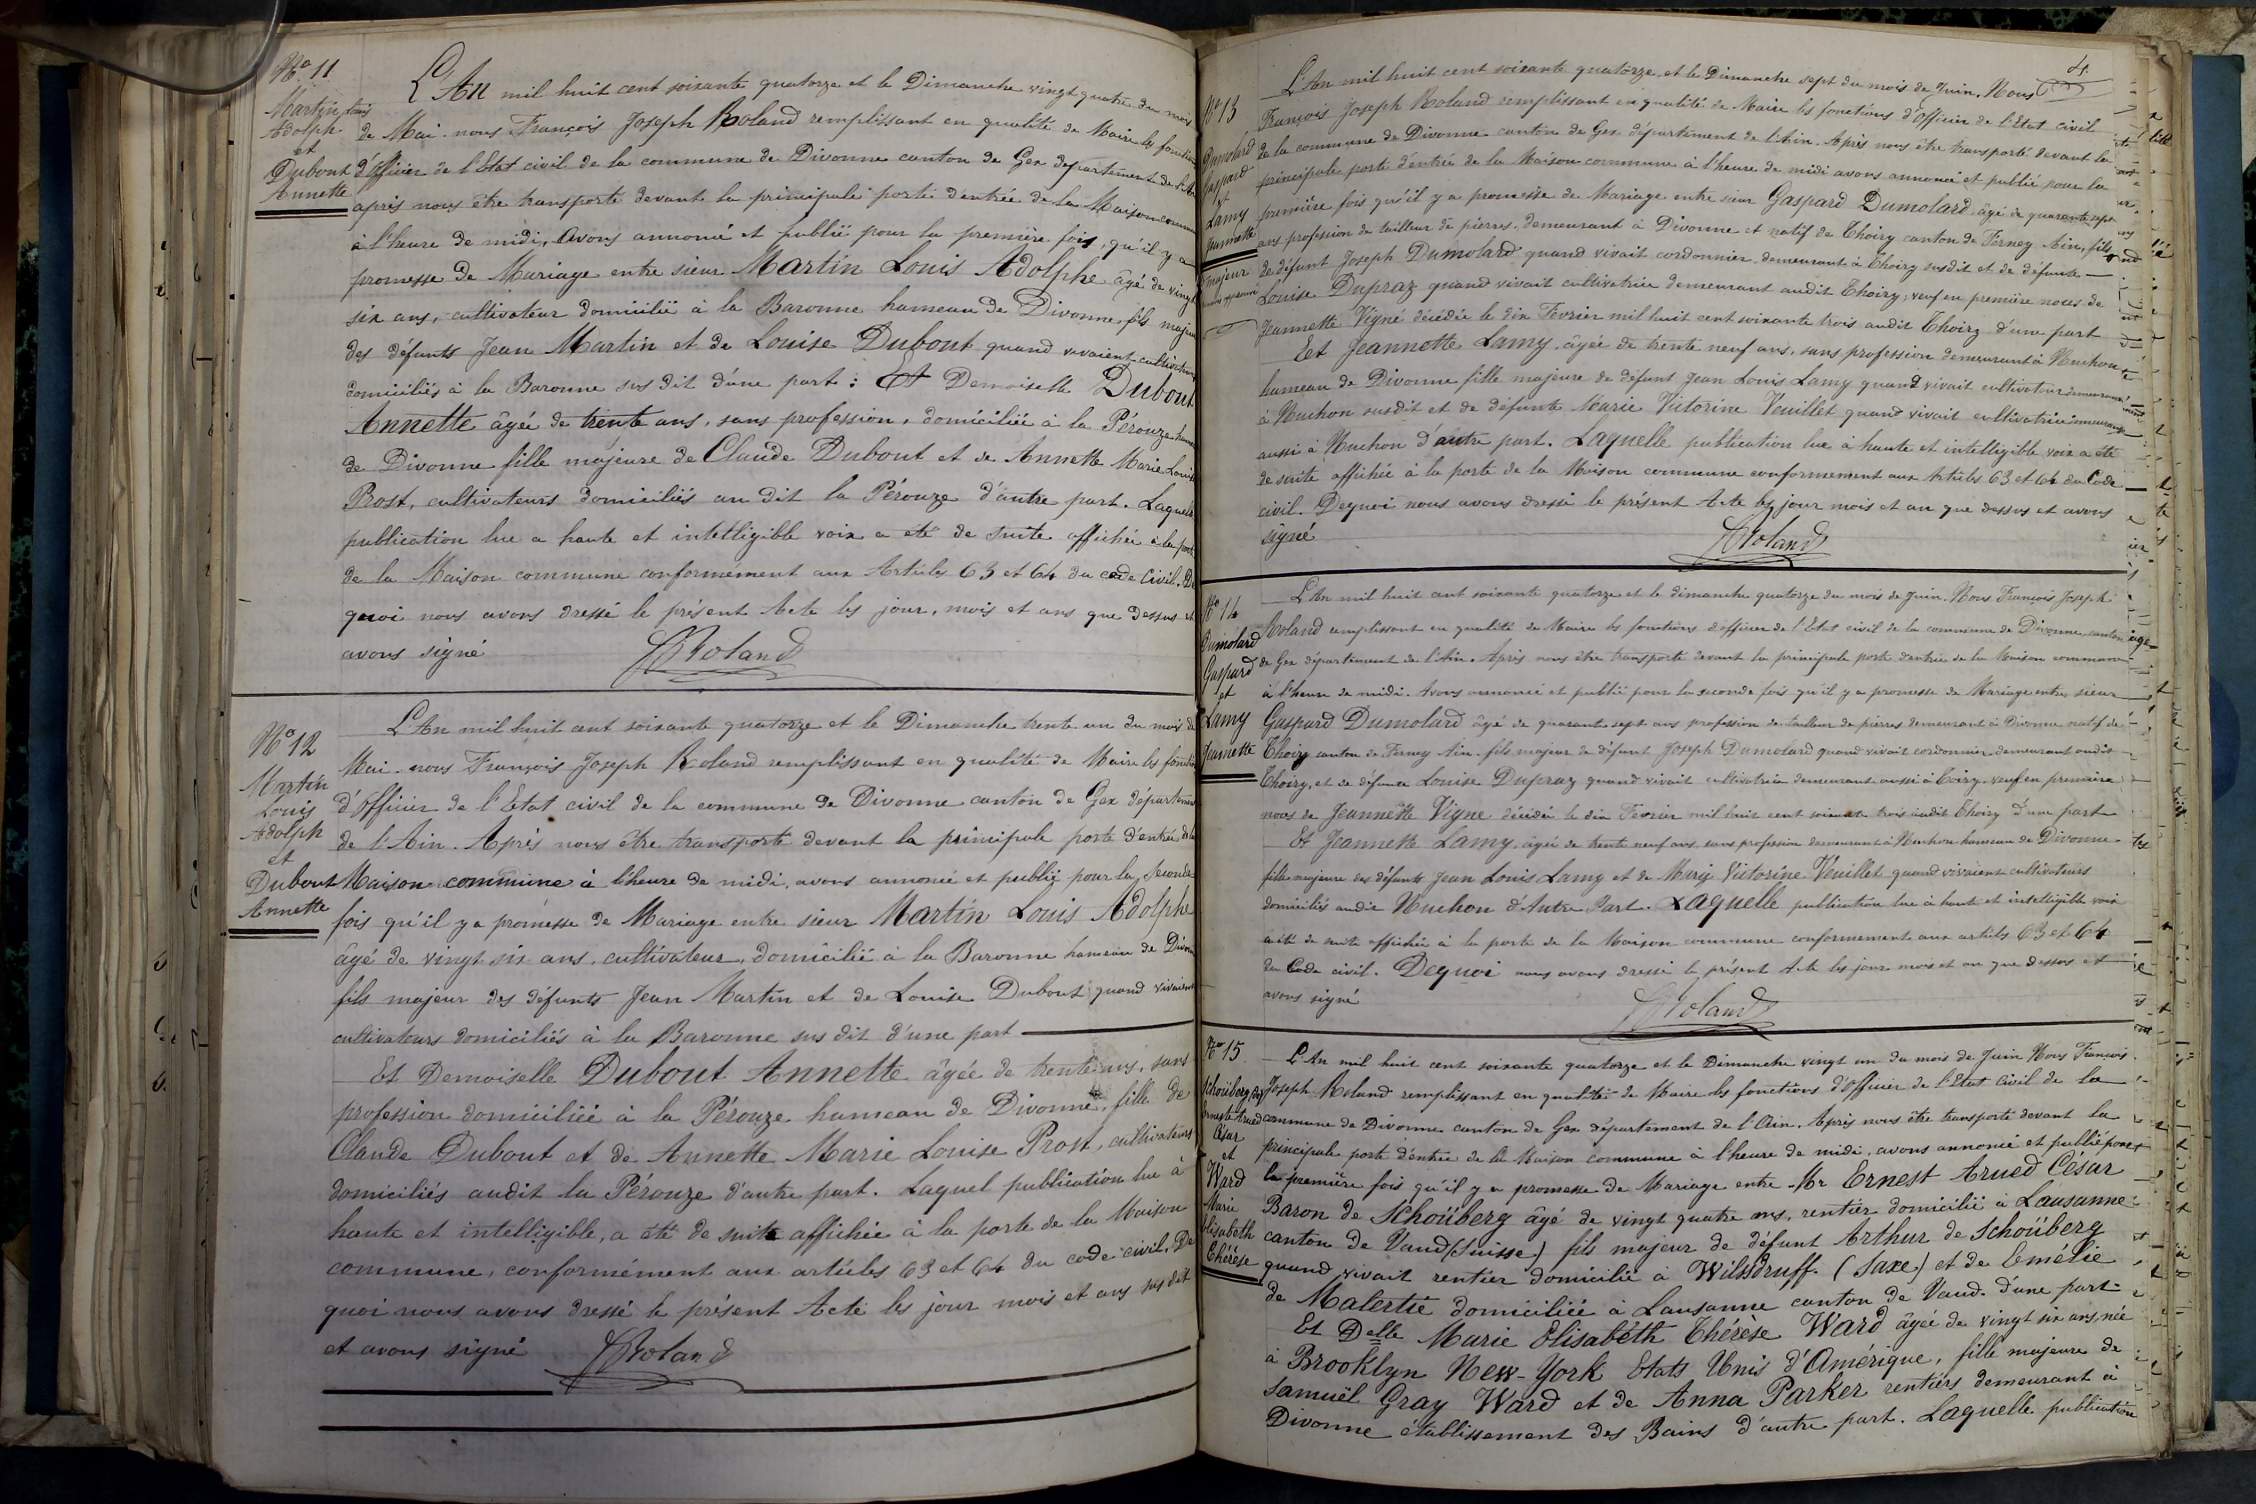 No 11
Martin Louis
Adolph
et
Dubout
Annette
L'An mil huit cent soixante quatorze et le Dimanche vingt quatre du mois
de Mai. nous François Joseph Roland remplissant en qualité de Maire les fonctions
d'Officier de l'Etat civil de la commune de Divonne canton de Gex département de l'Ain
après nous être transporté devant la principale porte d'entrée de la Maison commune
à l'heure de midi, Avons annoncé et publié pour la première fois, qu'il y a
promesse de Mariage entre sieur Martin Louis Adolphe âgé de vingt
six ans, cultivateur domicilié à la Baronne hameau de Divonne, fils majeur
des défunts Jean Martin et de Louise Dubout quand vivaient cultivateurs
domiciliés à la Baronne sus dit d'une part : Et Demoiselle Dubout
Annette âgée de trente ans, sans profession, domiciliée à la Pérouze hameau
de Divonne fille majeure de Claude Dubout et de Annette Marie Louise
Prost, cultivateurs domiciliés au dit la Pérouze d'autre part. Laquelle
publication lue a haute et intelligible voix a été de suite affichée à la porte
de la Maison commune conformément aux Articles 63 et 64 du code Civil. De
quoi nous avons dressé le présent Acte les jour, mois et ans que dessus et
avons signé
Roland
No 12
Martin
Louis
Adolph
et
Dubout
Annette
L'An mil huit cent soixante quatorze et le Dimanche trente un du mois de
Mai. nous François Joseph Roland remplissant en qualité de Maire les fonctions
d'Officier de l'Etat civil de la commune de Divonne canton de Gex département
de l'Ain. Après nous être transporté devant la principale porte d'entrée de la
Maison commune à l'heure de midi, avons annoncé et publié pour la Seconde
fois qu'il y a promesse de Mariage entre sieur Martin Louis Adolphe
âgé de vingt six ans, cultivateur, domicilié à la Baronne hameau de Divonne
fils majeur des défunts Jean Martin et de Louise Dubout quand vivaient
cultivateurs domiciliés à la Baronne sus dit d'une part
Et Demoiselle Dubout Annette âgée de trente ans, sans
profession domiciliée à la Pérouze hameau de Divonne, fille de
Claude Dubout et de Annette Marie Louise Prost, cultivateurs
domiciliés audit la Pérouze d'autre part. Laquel publication lue à
haute et intelligible, a été de suite affichée à la porte de la Maison
commune, conformément aux articles 63 et 64 du code civil. De
quoi nous avons dressé le présent Acte les jour mois et ans sus dit
et avons signé
Roland
4.
No 13
Dumolard
Gaspard
et
Lamy
Jeannette
majeur
L'An mil huit cent soixante quatorze et le Dimanche sept du mois de Juin. Nous
François Joseph Roland remplissant en qualité de Maire les fonctions d'Officier de l'Etat civil
de la commune de Divonne canton de Gex département de l'Ain. Après nous être transporté devant la
principale porte d'entrée de la Maison commune à l'heure de midi avons annoncé et publié pour la
première fois qu'il y a promesse de Mariage entre sieur Gaspard Dumolard âgé de quarante sept
ans profession de tailleur de pierres, demeurant à Divonne et natif de Thoiry canton de Ferney Ain, fils
de défunt Joseph Dumolard quand vivait cordonnier demeurant à Thoiry susdit et de défunte
Louise Dupraz quand vivait cultivatrice demeurant audit Thoiry, veuf en première noces de
Jeannette Vigné décédée le dix Février mil huit cent soixante trois audit Thoiry d'une part
Eet Jeannette Lamy, âgée de trente neuf ans, sans profession demeurant à Huchon
hameau de Divonne fille majeure de défunt Jean Louis Lamy quand vivait cultivateur demeurant
à Huchon susdit et de défunte Marie Victorine Veuillet quand vivait cultivatrice demeurant
aussi à Huchon d'autre part. Laquelle publication lue à haute et intelligible voix a été
de suite affichée à la porte de la Maison commune conformement aux Articles 63 et 64 du Code
civil. Dequoi nous avons dressé le présent Acte les jour mois et an que dessus et avons
signé
Roland
No 14
Dumolard
Gaspard
et
Lamy
Jeannette
L'An mil huit cent soixante quatorze et le dimanche quatorze du mois de Juin. Nous François Joseph
Roland remplissant en qualité de Maire les fonctions d'officier de l'Etat civil de la commune de Divonne, canton
de Gex département de l'Ain. Après nous être transporté devant la principale porte d'entrée de la Maison commune
à l'heure de midi. Avons annoncé et publié pour la seconde fois qu'il y a promesse de Mariage entre sieur
Gaspard Dumolard âgé de quarante sept ans profession de tailleur de pierres demeurant à Divonne natif de
Thoiry canton de Ferney Ain. fils majeur de défunt Joseph Dumolard quand vivait cordonnier demeurant audit
Thoiry, et de défunte Louise Dupraz quand vivait cultivatrice demeurant aussi à Toiry. veuf en première
noces de Jeannette Vigne décédée le dix Fevrier mil huit cent soixante trois audit Thoiry d'une part
Et Jeannette Lamy, âgée de trente neuf ans, sans profession demeurant à Huchon hameau de Divonne
fille majeure des défunts Jean Louis Lamy et de Marie Victorine Veuillet quand vivaient cultivateurs
domiciliés audit Huchon d'Autre Part. Laquelle publication lue à haut et intelligible voix
a été de suite affichée à la porte de la Maison commune conformement aux articles 63 et 64
du Code civil. Dequoi nous avons dressé le présent Acte les jour mois et an que dessus et
avons signé
Roland
No 15
César
et
Ward
Marie
Elisabeth
Thérèse
L'An mil huit cent soixante quatorze et le Dimanche vingt un du mois de Juin Nous François
Joseph Roland remplissant en qualité de Maire les fonctions d'Officier de l'Etat Civil de la
commune de Divonne canton de Gex département de l'Ain. Après nous être transporté devant la
principale porte d'entrée de la Maison commune à l'heure de midi, avons annoncé et publié pour
la première fois qu'il y a promesse de Mariage entre Mr Ernest Arued César
Baron de Schoüberg âgé de vingt quatre ans, rentier domicilié à Lausanne
canton de Vaud (Suisse) fils majeur de défunt Arthur de Schoüberg
quand vivait rentier domicilié à Wilsdruff. (Saxe) et de Emélie
de Malertie domiciliée à Lausanne canton de Vaud. d'une part
Et Delle Marie Elisabéth Thérèse Ward âgée de vingt six ans, née
à Brooklyn New-York Etats Unis d'Amérique, fille majeure de
Samuël Gray Ward et de Anna Parker rentiers demeurant à
Divonne établissement des Bains d'autre part. Laquelle publication